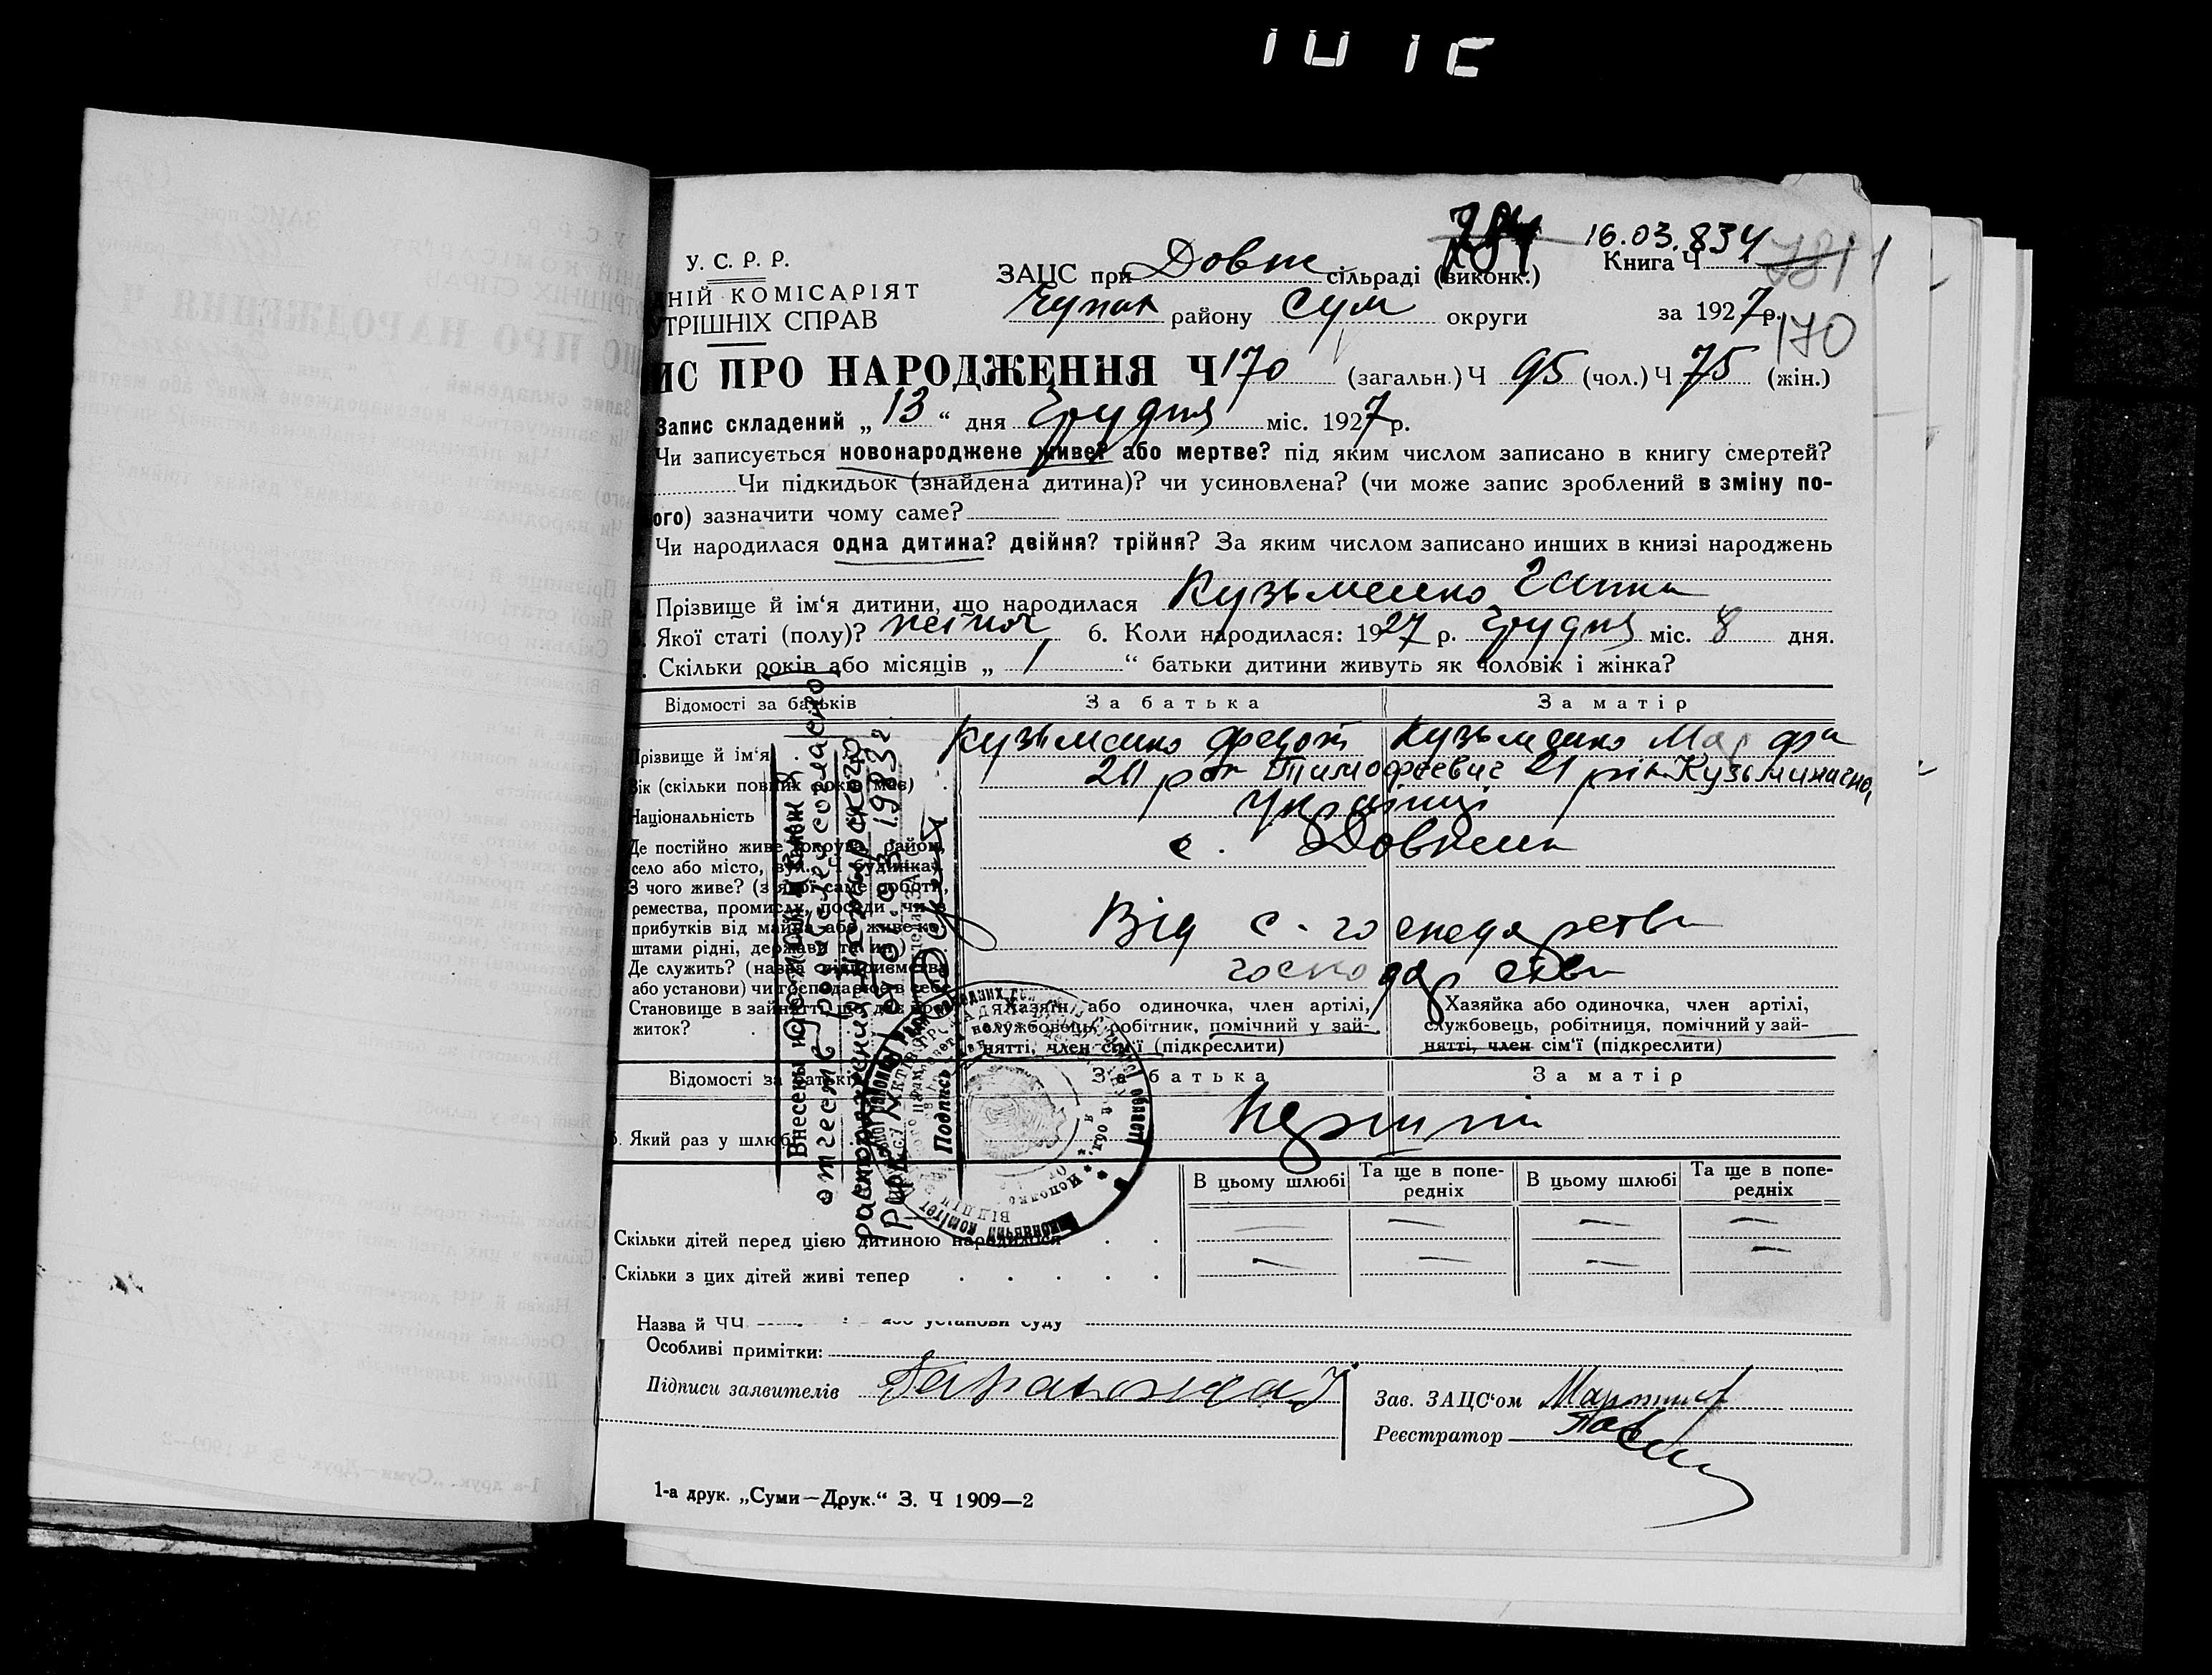 У. С. Р. Р.
НІЙ КОМІСАРІЯТ
УТРІШНІХ СПРАВ
ЗАЦС при Довж сільраді (виконк.)
16.03.834
Книга Ч
Чупах району Сум округи
за 1927 р.
170
ИС ПРО НАРОДЖЕННЯ Ч 170 (загальн.) Ч 95 (чол.) Ч 75 (жін.)
Запис складений „ 13 “ дня Грудня міс. 1927 р.
Чи записується новонароджене живе? або мертве? під яким числом записано в книгу смертей?
Чи підкидьок (знайдена дитина)? чи усиновлена? (чи може запис зроблений в зміну по-
ого) зазначити чому саме?
Чи народилася одна дитина? двійня? трійня? За яким числом записано инших в книзі народжень
Прізвище й ім‘я дитини, що народилася Кузьменко Ганна
Якої статі (полу)? жіноч 6. Коли народилася: 1927 р. Грудня міс. 8 дня.
Скільки років або місяців „ 1 “ батьки дитини живуть як чоловік і жінка?
Відомості за батьків За батька За матір
Прізвище й ім‘я Кузьменко Федот Кузьменко Марфа
Вік (скільки повних років має) 20 рок Тимофеевич 21 рік Кузьминична
Національність Українці
Де постійно живе (округа, район,
село або місто, вул. і Ч будинка) с. Довжик
З чого живе? (з якої саме роботи,
ремества, промислу, посади, чи з
прибутків від майна або живе ко-
штами рідні, держави та ин.) Від с-господарства
Де служить? (назва підприємства
або установи) чи господарює в себе господарства
Становище в занятті, що дає про-
житок?
Хазяїн або одиночка, член артілі,
службовець, робітник, помічний у зай-
нятті, член сім‘ї (підкреслити)
Хазяйка або одиночка, член артілі,
службовець, робітниця, помічний у зай-
нятті, член сім‘ї (підкреслити)
Внесены исправления
отчеств родителей согласно
распоряжения
1983г
Подпись
Відомості за батьків За батька За матір
Який раз у шлюбі Перший
В цьому шлюбі Та ще в попе-
редніх В цьому шлюбі Та ще в попе-
редніх
Скільки дітей перед цією дитиною народилося
Скільки з цих дітей живі тепер
Назва й ЧЧ або установи суду
Особливі примітки:
Підписи заявителів
Зав. ЗАЦС‘ом
Реєстратор
1-а друк. „Суми—Друк.“ З. Ч 1909—2